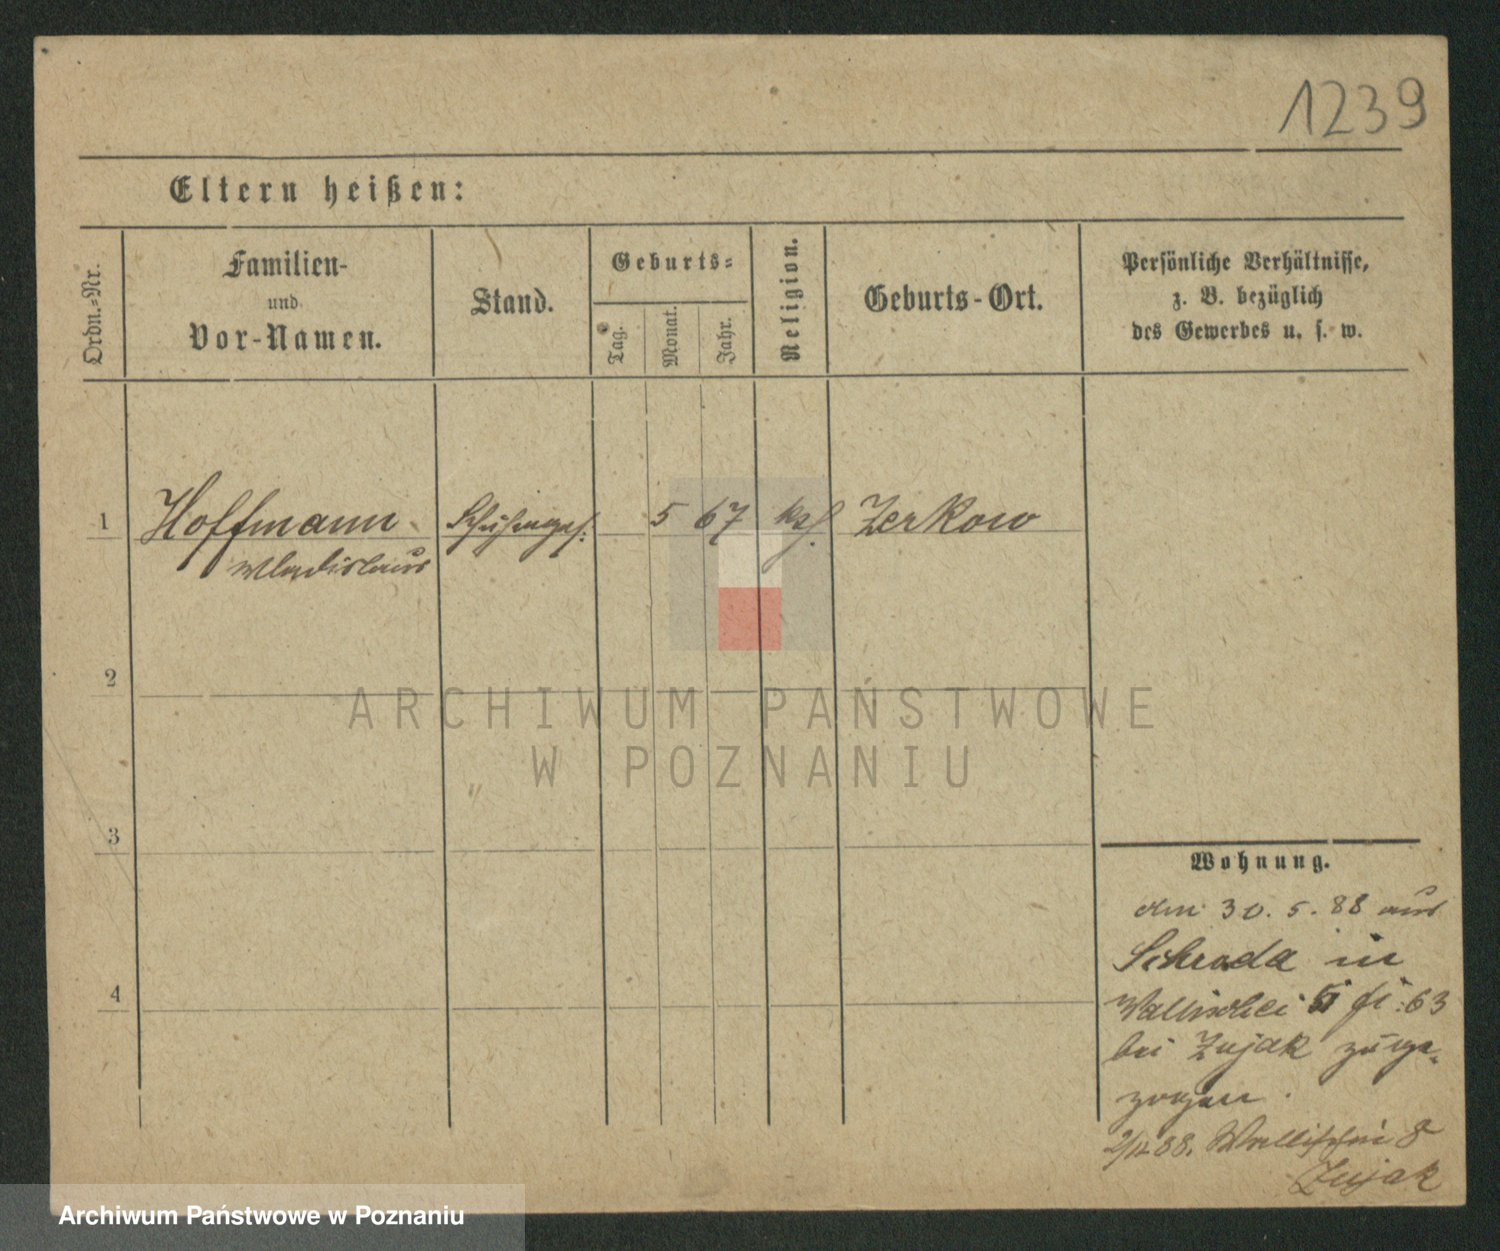 1239
Eltern heißen:
Ordn.-Nr.
Familien-
und
Vor-Namen.
Stand.
Geburts-
Tag.
Monat.
Jahr.
Religion.
Geburts-Ort.
Persönliche Verhältnisse,
z. B. bezüglich
des Gewerbes u. s. w.
1 Hoffmann 5 67 Zerkow
Wladislaus
2
3
4
Wohnung.
30. 5. 88 aus
Schroda in
Wallischei 63
bei Zujak zuge-
zogen.
88. Wallischei 8
Zujak
ARCHIWUM PAŃSTWOWE
W POZNANIU
Archiwum Państwowe w Poznaniu